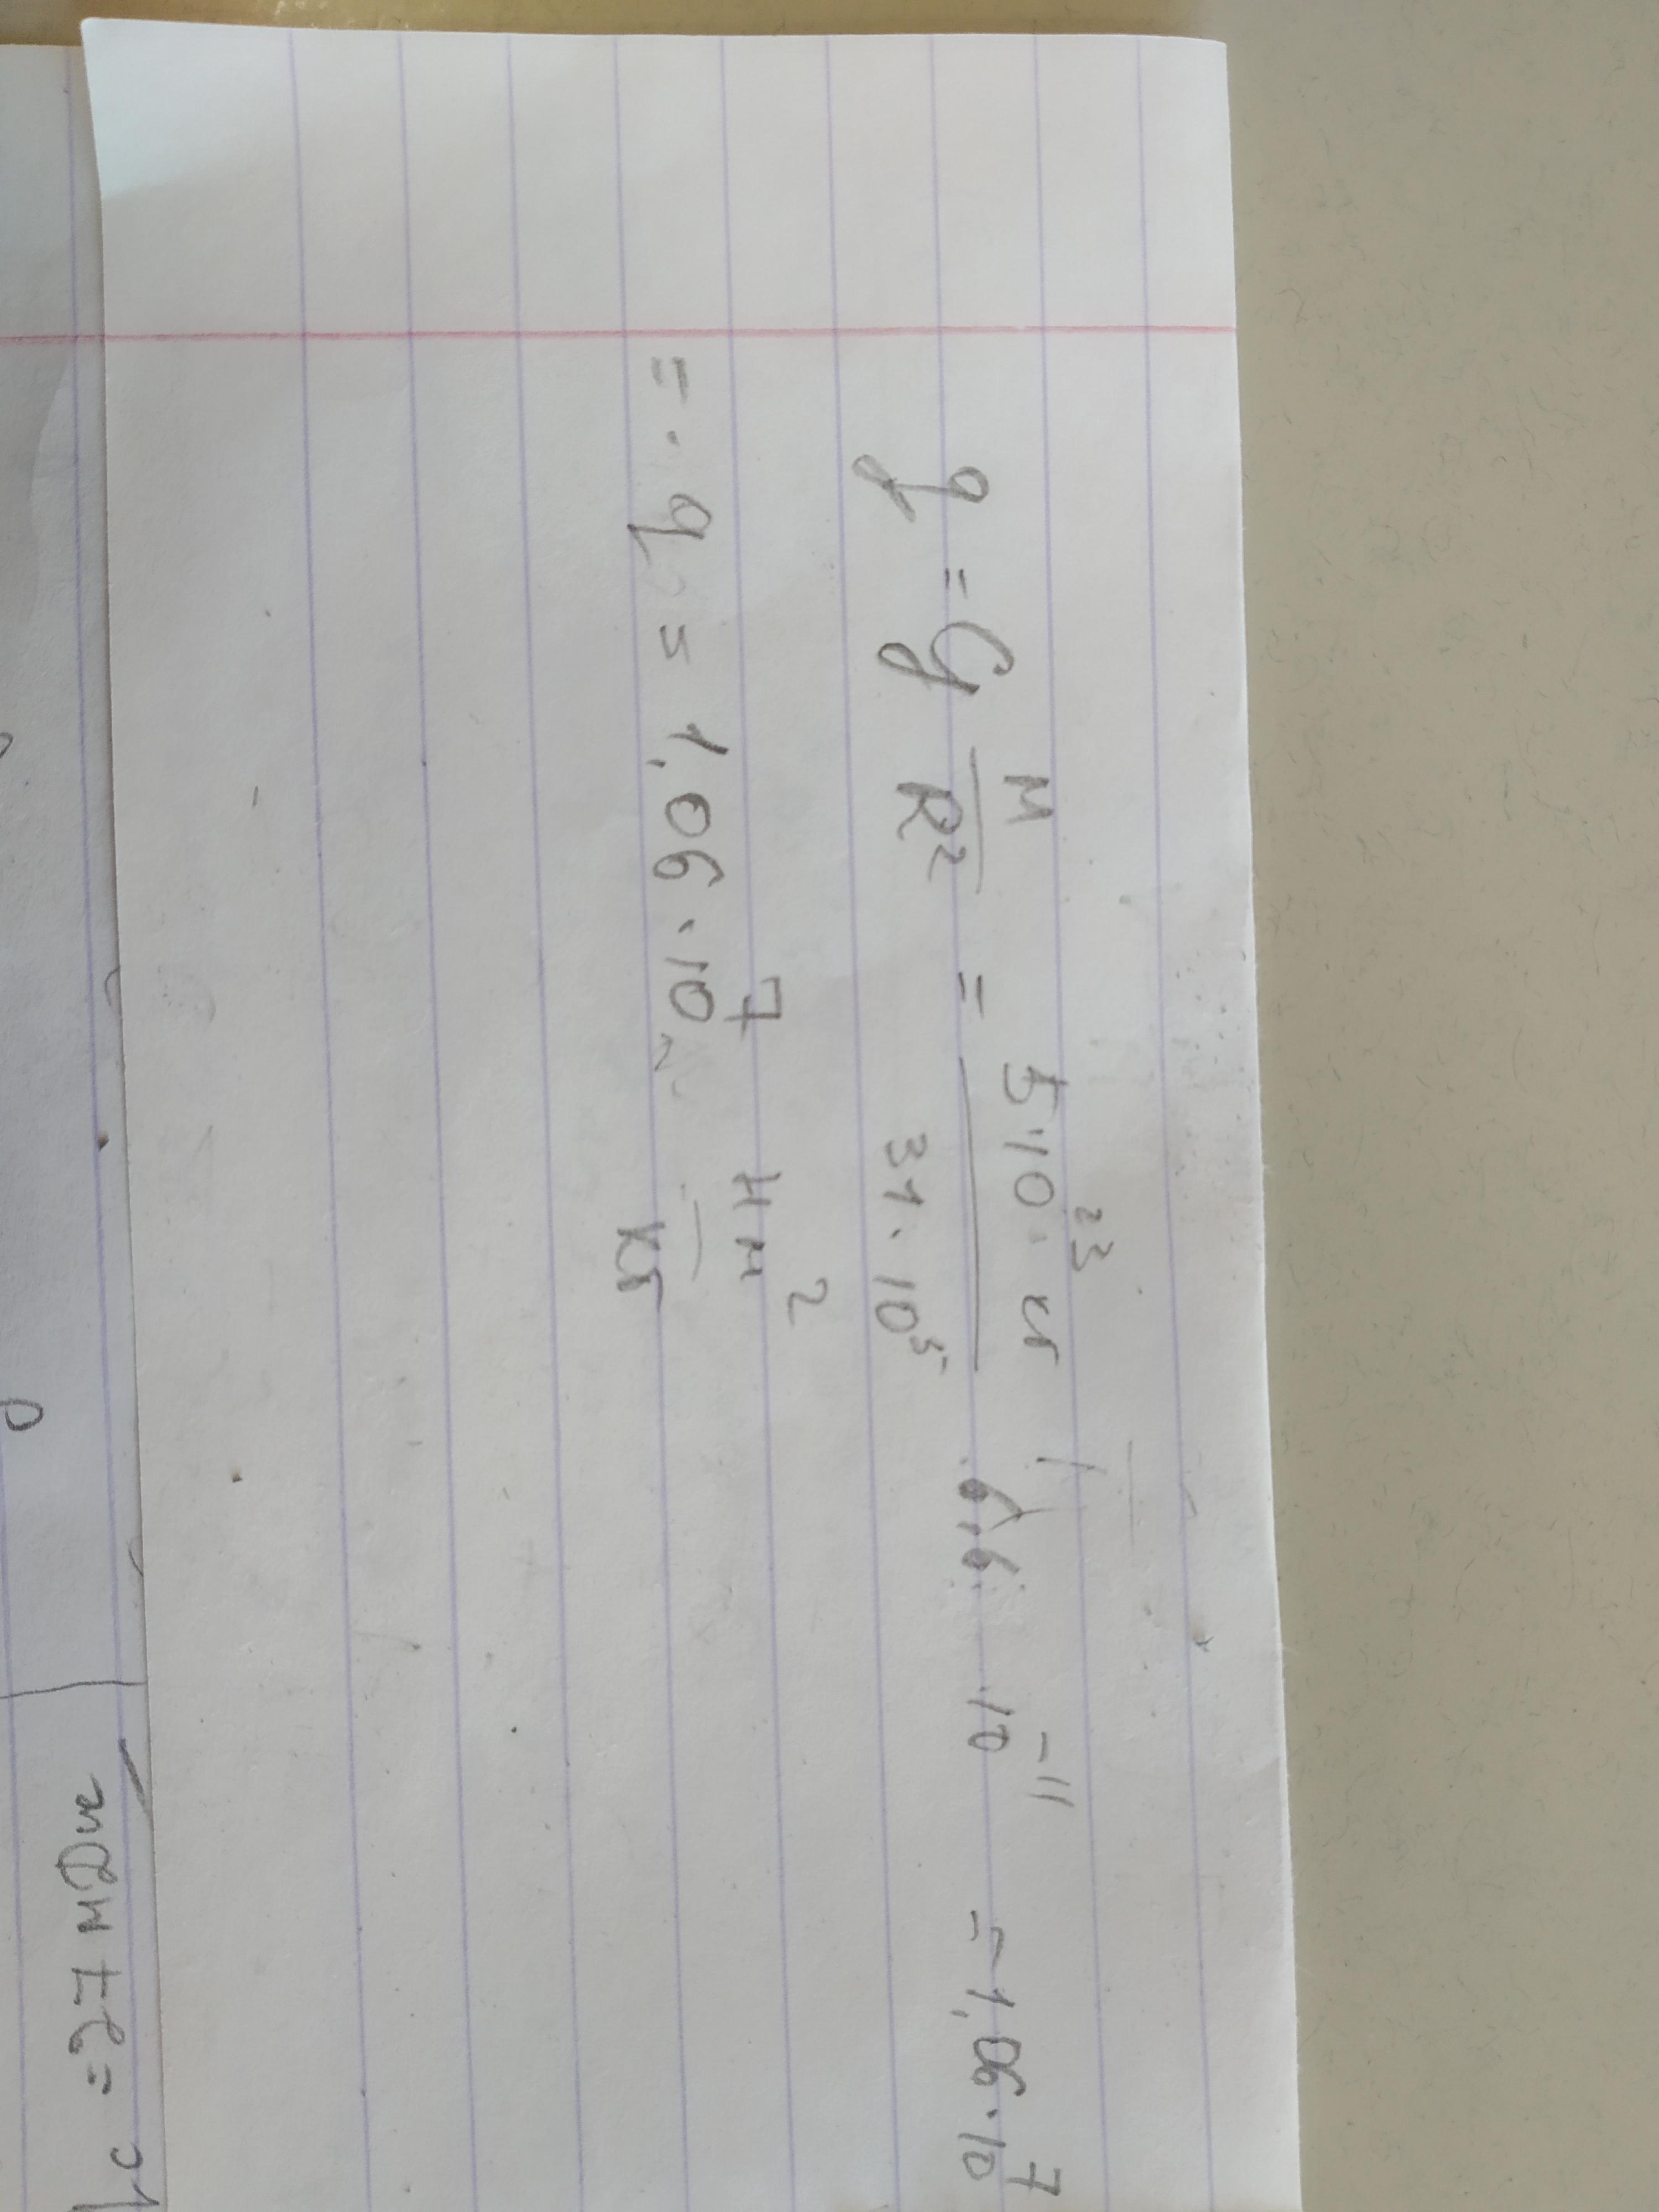 g = G M/R² = 5·10²³ кг / 31·10⁵ · 6,6 · 10⁻¹¹ = 1,06·10⁷
= · g = 1,06·10⁷ Нм²/кг
= 27 МДж